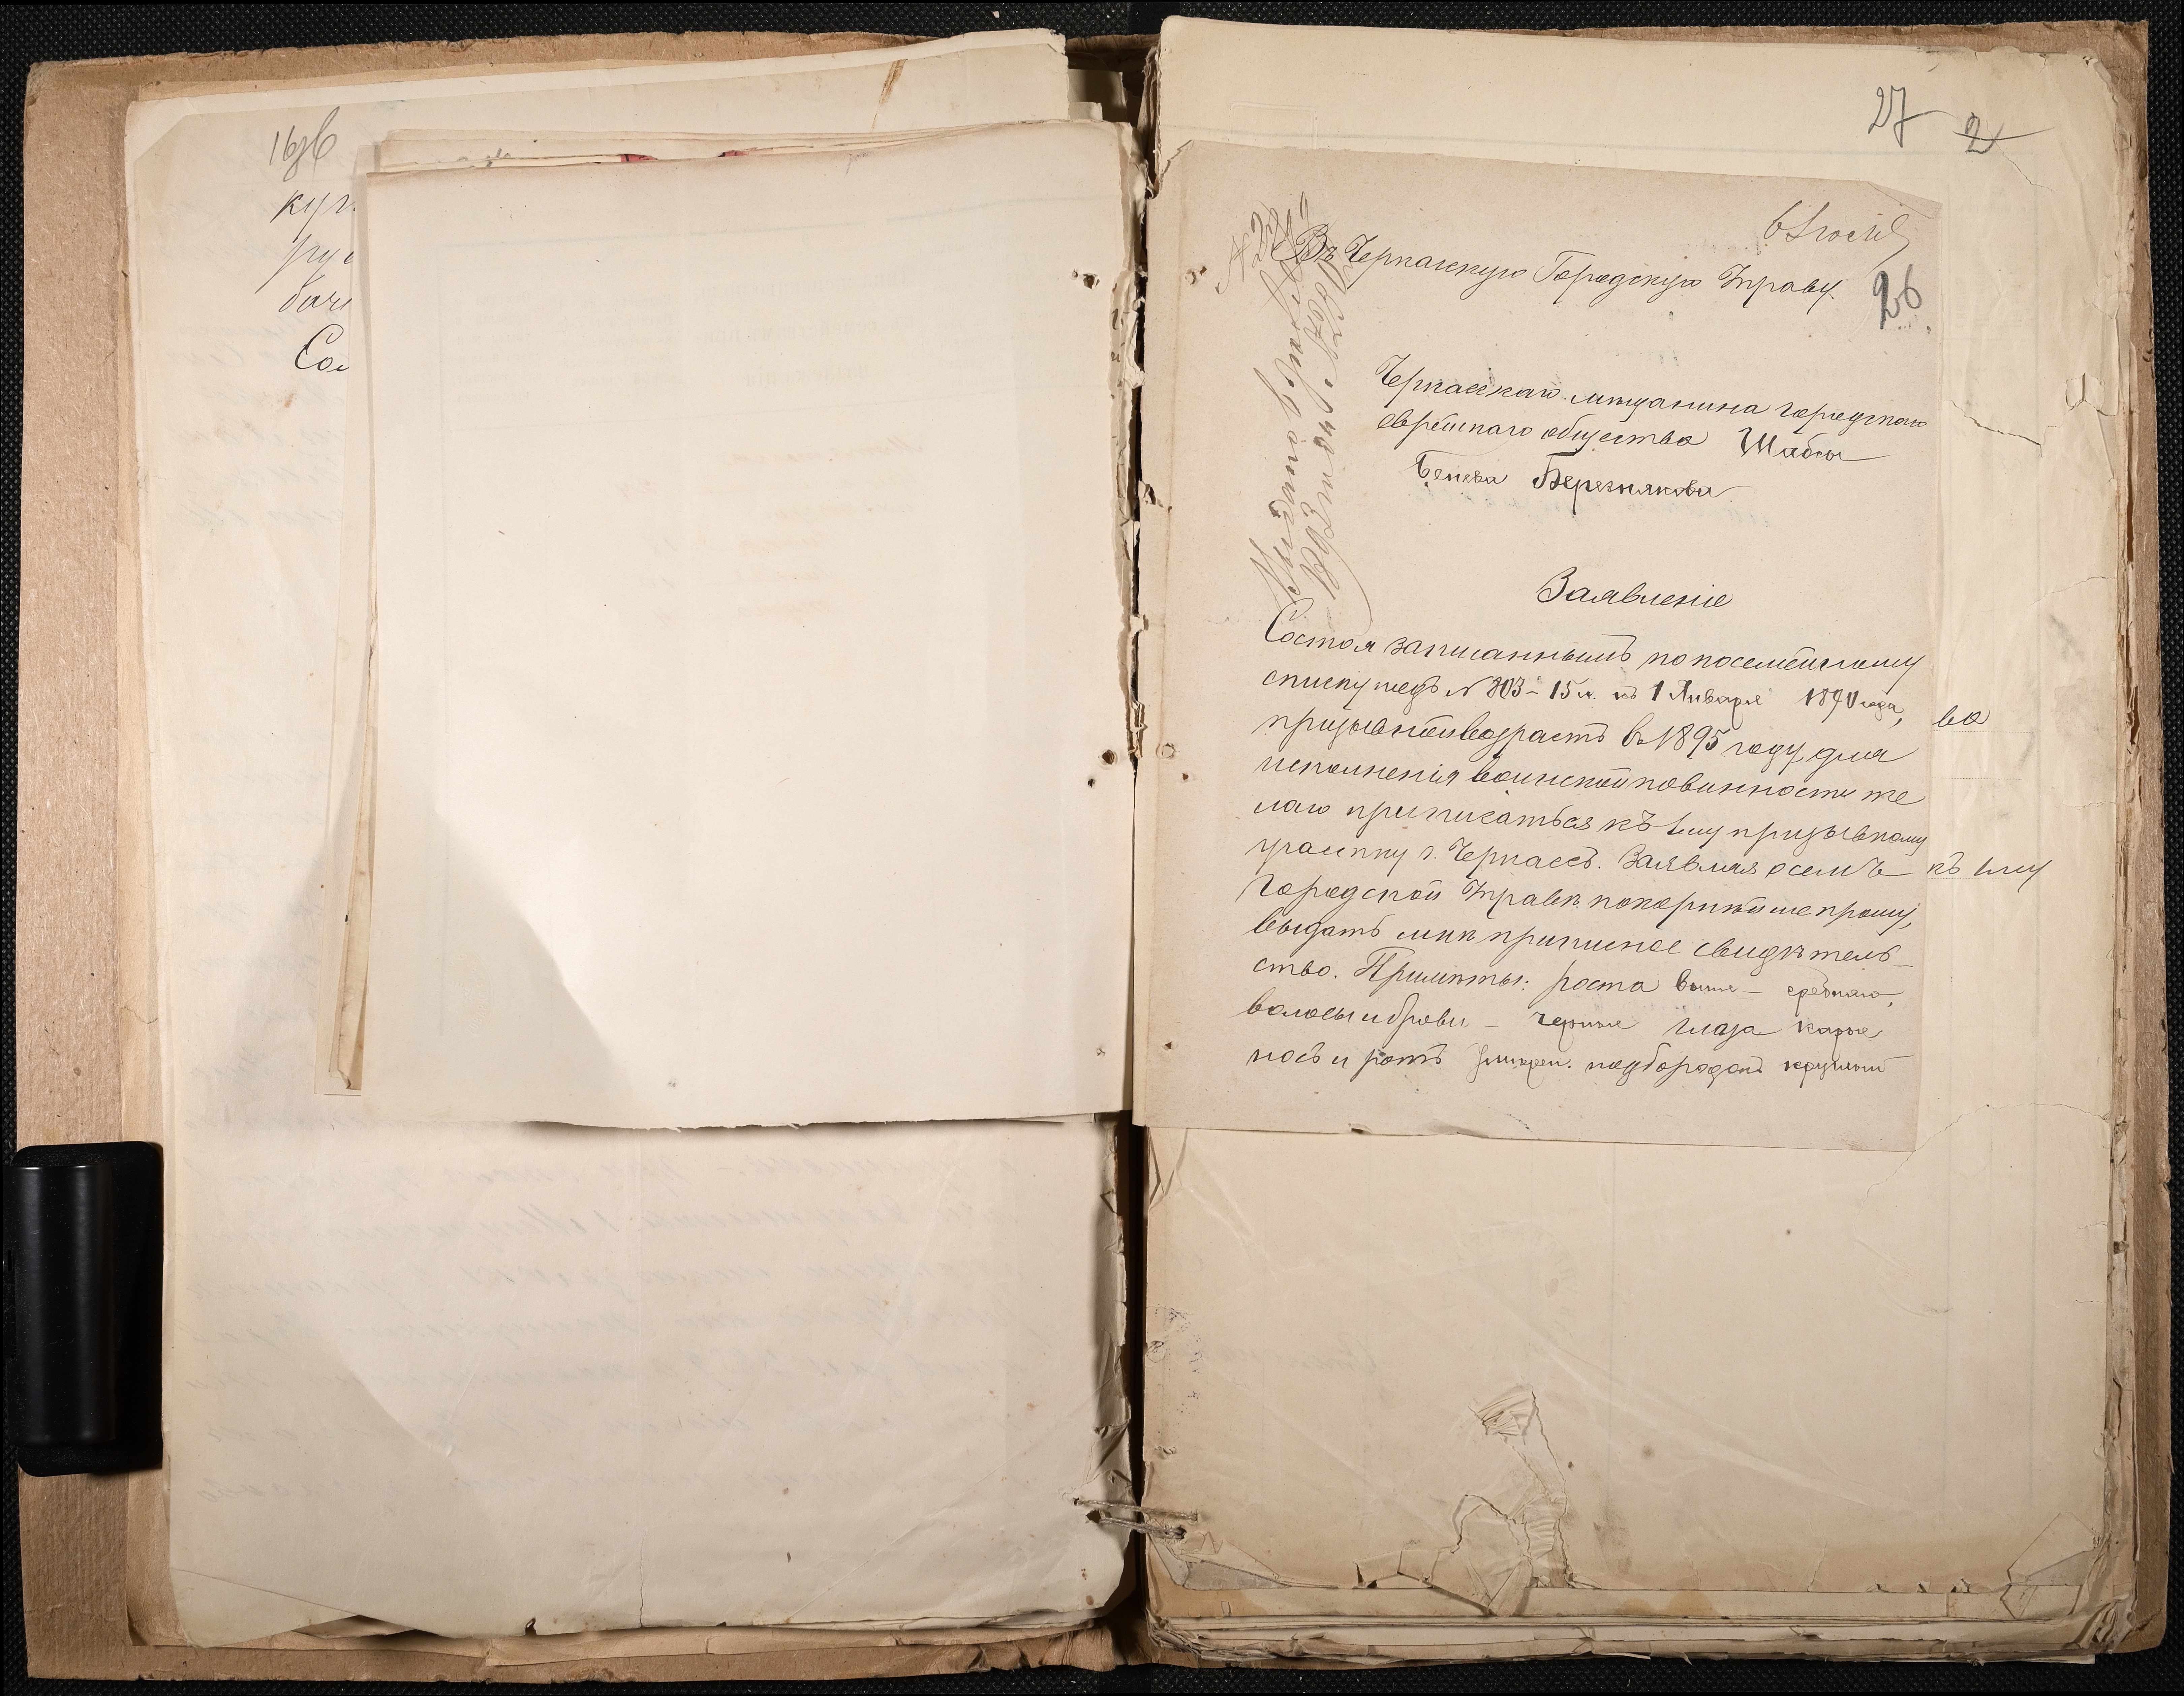 кур
Со
27 2
26
Въ Черкасскую Городскую Управу.
Черкасскаго мѣщанина городскаго
еврейскаго общества Шабсы
Бенева Березнякова
Заявленіе
Состоя записаннымъ по посемейному
списку подъ N 803 - 15 л. къ 1 Января 1890 года,
призывной возрастъ въ 1895 году, для
исполненія воинской повинности же
лаю приписаться къ 1му призывному
участку г. Черкассъ. Заявляя о семъ
Городской Управѣ покорнѣйше прошу,
выдать мнѣ приписное свидѣтель-
ство. Примѣты: роста выше - средняго,
волосы и брови - черные глаза карые
носъ и ротъ умѣрен. подбородокъ круглый
во
къ 1му